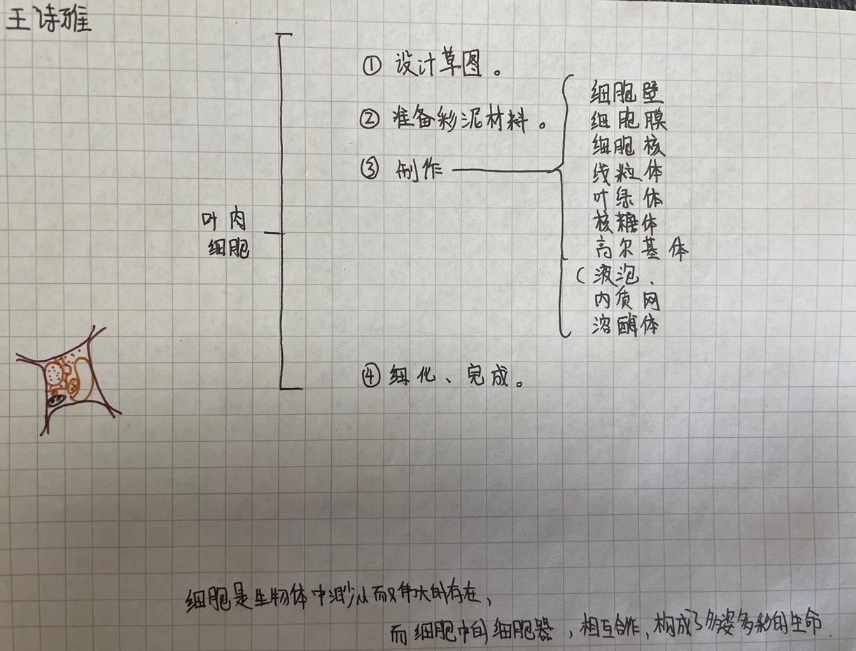 王诗雅
① 设计草图。
② 准备彩泥材料。
③ 制作
细胞壁
细胞膜
细胞核
线粒体
叶绿体
核糖体
高尔基体
（液泡、
内质网
溶酶体
叶肉
细胞
④ 细化、完成。
细胞是生物体中渺小而又伟大的存在，
而细胞中的细胞器，相互合作，构成了多姿多彩的生命.